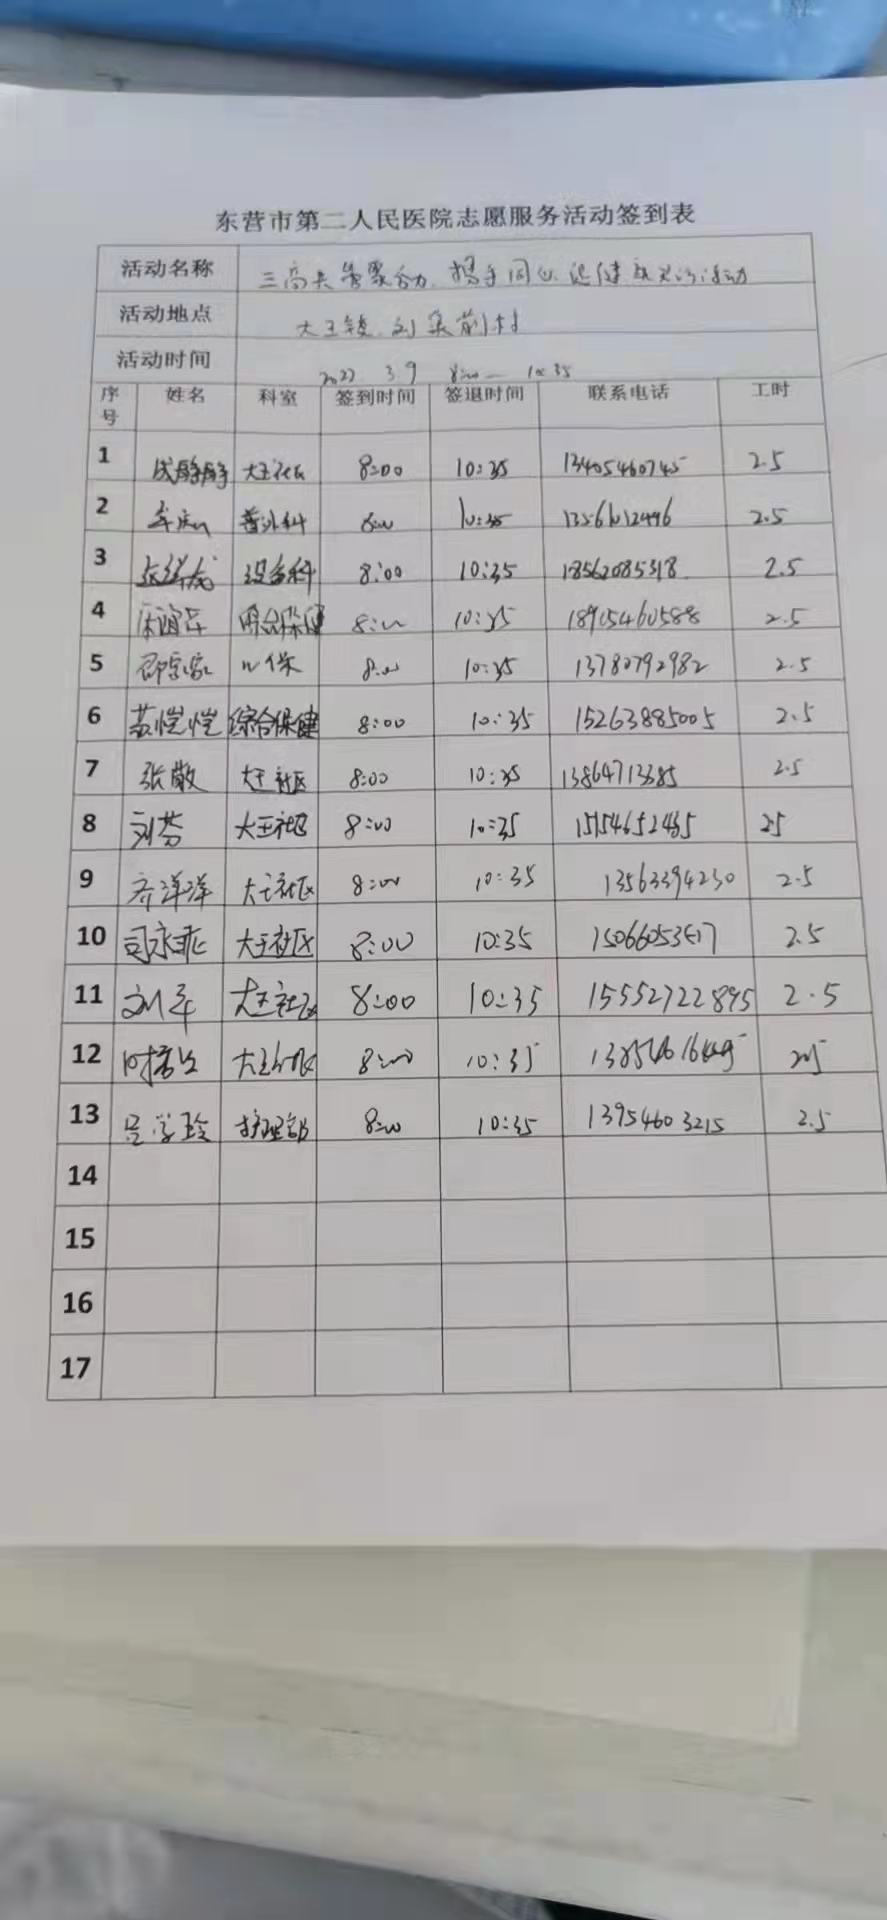 东营市第二人民医院志愿服务活动签到表
活动名称 三高共管聚合力 携手同心促健康义诊活动
活动地点 大王镇 刘集前村
活动时间 2022 3 9 8:00 — 10:35
序号 姓名 科室 签到时间 签退时间 联系电话 工时
1 大王社区 8:00 10:35 13405460745 2.5
2 普外科 8:00 10:35 2.5
3 设备科 8:00 10:35 18562085318 2.5
4 综合保健 8:00 10:35 18905460588 2.5
5 8:00 10:35 13780792982 2.5
6 苏恺恺 综合保健 8:00 10:35 15263885005 2.5
7 张敏 大王社区 8:00 10:35 13864713385 2.5
8 刘芬 大王社区 8:00 10:35 15154652465 25
9 齐洋洋 大王社区 8:00 10:35 13563394230 2.5
10 司永乖 大王社区 8:00 10:35 15066053517 2.5
11 刘军 大王社区 8:00 10:35 15552722895 2.5
12 大王社区 8:00 10:35 2.5
13 吕学玲 护理部 8:00 10:35 13954603215 2.5
14
15
16
17